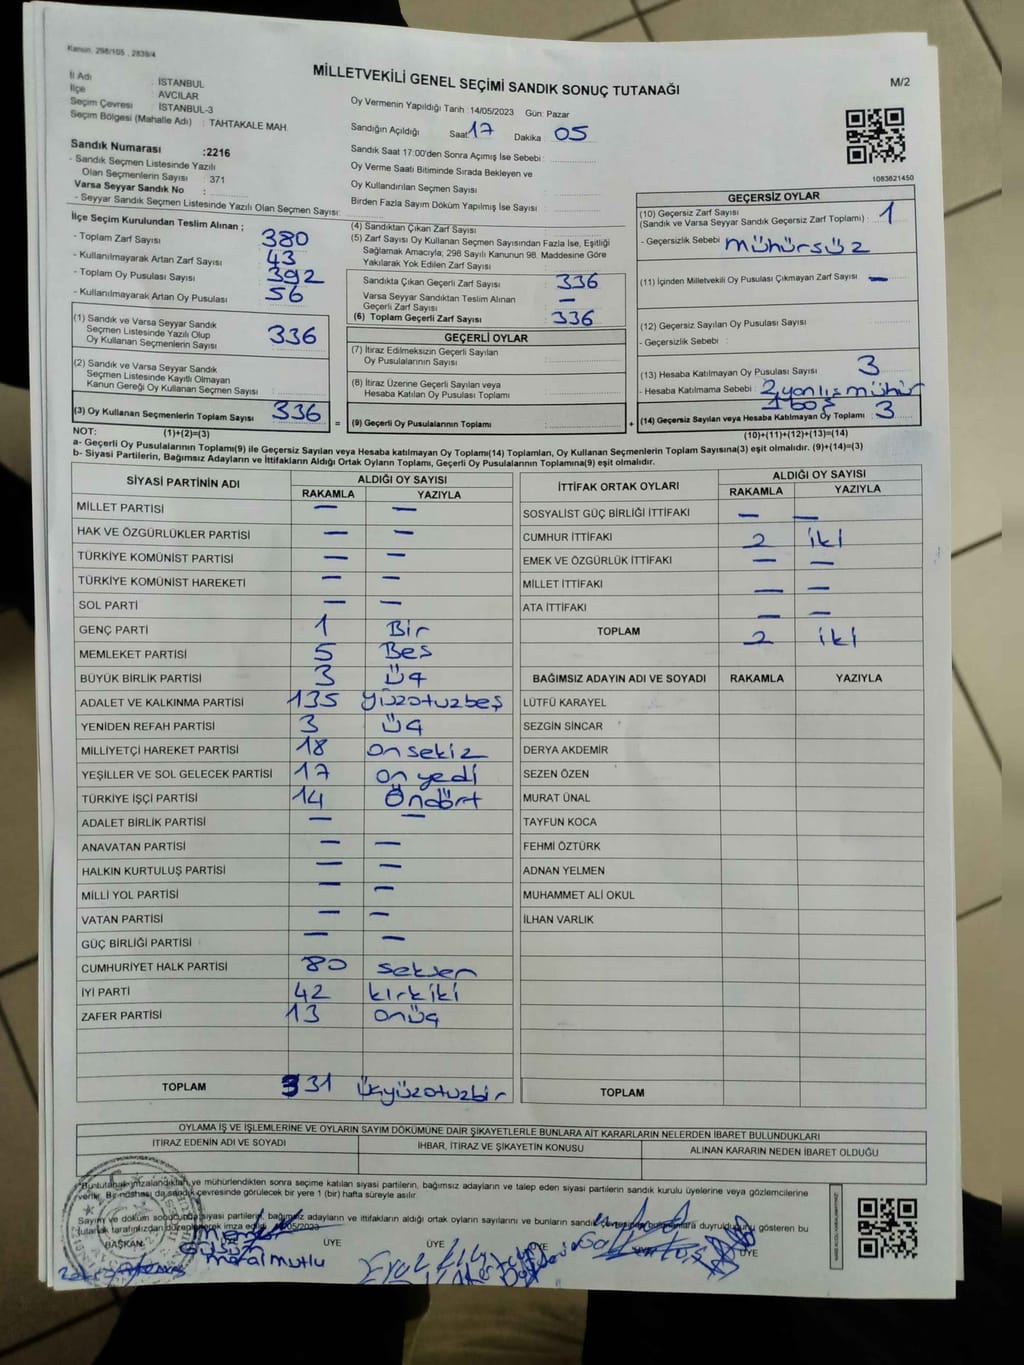 Kanun, 298/105 , 2839/4
MİLLETVEKİLİ GENEL SEÇİMİ SANDIK SONUÇ TUTANAĞI
M/2
İl Adı : İSTANBUL
İlçe : AVCILAR
Seçim Çevresi : İSTANBUL-3
Seçim Bölgesi (Mahalle Adı) : TAHTAKALE MAH.
Sandık Numarası :2216
- Sandık Seçmen Listesinde Yazılı
Olan Seçmenlerin Sayısı : 371
Varsa Seyyar Sandık No :
- Seyyar Sandık Seçmen Listesinde Yazılı Olan Seçmen Sayısı:
Oy Vermenin Yapıldığı Tarih :14/05/2023 Gün: Pazar
Sandığın Açıldığı Saat 17 Dakika 05
Sandık Saat 17:00'den Sonra Açımış İse Sebebi :
Oy Verme Saati Bitiminde Sırada Bekleyen ve
Oy Kullandırılan Seçmen Sayısı :
Birden Fazla Sayım Döküm Yapılmış İse Sayısı :
1083621450
İlçe Seçim Kurulundan Teslim Alınan ;
- Toplam Zarf Sayısı 380
- Kullanılmayarak Artan Zarf Sayısı 43
- Toplam Oy Pusulası Sayısı 392
- Kullanılmayarak Artan Oy Pusulası 56
(1) Sandık ve Varsa Seyyar Sandık
Seçmen Listesinde Yazılı Olup
Oy Kullanan Seçmenlerin Sayısı 336
(2) Sandık ve Varsa Seyyar Sandık
Seçmen Listesinde Kayıtlı Olmayan
Kanun Gereği Oy Kullanan Seçmen Sayısı :
(3) Oy Kullanan Seçmenlerin Toplam Sayısı 336
(4) Sandıktan Çıkan Zarf Sayısı :
(5) Zarf Sayısı Oy Kullanan Seçmen Sayısından Fazla İse, Eşitliği
Sağlamak Amacıyla; 298 Sayılı Kanunun 98. Maddesine Göre
Yakılarak Yok Edilen Zarf Sayısı :
Sandıkta Çıkan Geçerli Zarf Sayısı : 336
Varsa Seyyar Sandıktan Teslim Alınan
Geçerli Zarf Sayısı : —
(6) Toplam Geçerli Zarf Sayısı : 336
GEÇERLİ OYLAR
(7) İtiraz Edilmeksizin Geçerli Sayılan
Oy Pusulalarının Sayısı :
(8) İtiraz Üzerine Geçerli Sayılan veya
Hesaba Katılan Oy Pusulası Toplamı :
= (9) Geçerli Oy Pusulalarının Toplamı :
GEÇERSİZ OYLAR
(10) Geçersiz Zarf Sayısı
(Sandık ve Varsa Seyyar Sandık Geçersiz Zarf Toplamı) : 1
- Geçersizlik Sebebi : mühürsüz
(11) İçinden Milletvekili Oy Pusulası Çıkmayan Zarf Sayısı : —
(12) Geçersiz Sayılan Oy Pusulası Sayısı :
- Geçersizlik Sebebi :
(13) Hesaba Katılmayan Oy Pusulası Sayısı : 3
- Hesaba Katılmama Sebebi : 2 yanlış mühür
1 boş
+ (14) Geçersiz Sayılan veya Hesaba Katılmayan Oy Toplamı : 3
NOT: (1)+(2)=(3) (10)+(11)+(12)+(13)=(14)
a- Geçerli Oy Pusulalarının Toplamı(9) ile Geçersiz Sayılan veya Hesaba katılmayan Oy Toplamı(14) Toplamları, Oy Kullanan Seçmenlerin Toplam Sayısına(3) eşit olmalıdır. (9)+(14)=(3)
b- Siyasi Partilerin, Bağımsız Adayların ve İttifakların Aldığı Ortak Oyların Toplamı, Geçerli Oy Pusulalarının Toplamına(9) eşit olmalıdır.
SİYASİ PARTİNİN ADI ALDIĞI OY SAYISI
RAKAMLA YAZIYLA
MİLLET PARTİSİ — —
HAK VE ÖZGÜRLÜKLER PARTİSİ — —
TÜRKİYE KOMÜNİST PARTİSİ — —
TÜRKİYE KOMÜNİST HAREKETİ — —
SOL PARTİ — —
GENÇ PARTİ 1 Bir
MEMLEKET PARTİSİ 5 Bes
BÜYÜK BİRLİK PARTİSİ 3 Üç
ADALET VE KALKINMA PARTİSİ 135 yüzotuzbeş
YENİDEN REFAH PARTİSİ 3 Üç
MİLLİYETÇİ HAREKET PARTİSİ 18 on sekiz
YEŞİLLER VE SOL GELECEK PARTİSİ 17 on yedi
TÜRKİYE İŞÇİ PARTİSİ 14 Öndört
ADALET BİRLİK PARTİSİ — —
ANAVATAN PARTİSİ — —
HALKIN KURTULUŞ PARTİSİ — —
MİLLİ YOL PARTİSİ — —
VATAN PARTİSİ — —
GÜÇ BİRLİĞİ PARTİSİ — —
CUMHURİYET HALK PARTİSİ 80 seksen
İYİ PARTİ 42 kırkiki
ZAFER PARTİSİ 13 onüç
TOPLAM 331 üçyüzotuzbir
İTTİFAK ORTAK OYLARI ALDIĞI OY SAYISI
RAKAMLA YAZIYLA
SOSYALİST GÜÇ BİRLİĞİ İTTİFAKI — —
CUMHUR İTTİFAKI 2 iki
EMEK VE ÖZGÜRLÜK İTTİFAKI — —
MİLLET İTTİFAKI — —
ATA İTTİFAKI — —
TOPLAM 2 iki
BAĞIMSIZ ADAYIN ADI VE SOYADI RAKAMLA YAZIYLA
LÜTFÜ KARAYEL
SEZGİN SİNCAR
DERYA AKDEMİR
SEZEN ÖZEN
MURAT ÜNAL
TAYFUN KOCA
FEHMİ ÖZTÜRK
ADNAN YELMEN
MUHAMMET ALİ OKUL
İLHAN VARLIK
TOPLAM
OYLAMA İŞ VE İŞLEMLERİNE VE OYLARIN SAYIM DÖKÜMÜNE DAİR ŞİKAYETLERLE BUNLARA AİT KARARLARIN NELERDEN İBARET BULUNDUKLARI
İTİRAZ EDENİN ADI VE SOYADI İHBAR, İTİRAZ VE ŞİKAYETİN KONUSU ALINAN KARARIN NEDEN İBARET OLDUĞU
imzalandıktan ve mühürlendikten sonra seçime katılan siyasi partilerin, bağımsız adayların ve talep eden siyasi partilerin sandık kurulu üyelerine veya gözlemcilerine
verilir. Bir nüshası da sandık çevresinde görülecek bir yere 1 (bir) hafta süreyle asılır.
Sayım ve döküm sonucunda siyasi partilerin, bağımsız adayların ve ittifakların aldığı ortak oyların sayılarını ve bunların sandık duyurulduğunu gösteren bu
tutanak tarafımızdan imza edildi.
BAŞKAN ÜYE ÜYE ÜYE ÜYE
meral mutlu